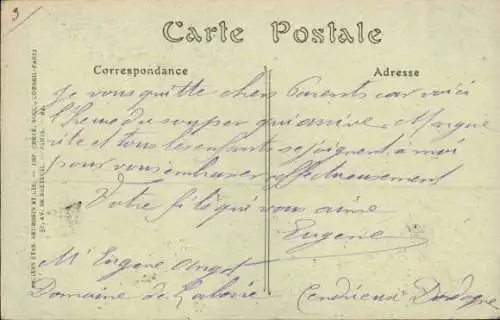 3
Carte Postale
Correspondance
Adresse
Je vous quitte chers Parents car voici
l'heure du souper qui arrive. Margue
rite et tous les enfants se joignent à moi
pour vous embrasser affectueusement
Votre fils qui vous aime
Eugène
Mr Eugène Angot
Domaine de
Cendrieux Dordogne